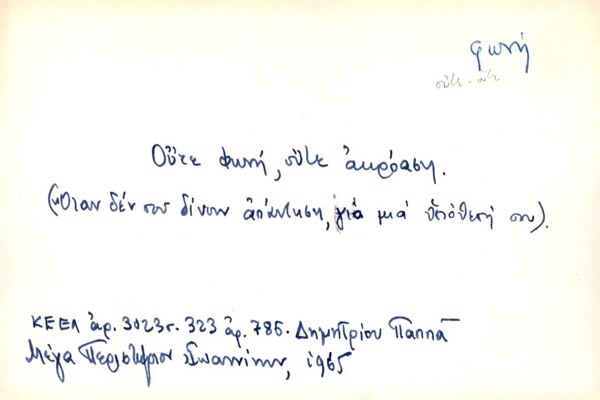 φωνή
οὔτε - οὔτε
Οὔτε φωνή, οὔτε ἀκρόαση.
(Ὅταν δέν σου δίνουν ἀπάντηση, γιά μιά ὑπόθεσή σου).
ΚΕΕΛ ἀρ. 3023 σ. 323 ἀρ. 786. Δημητρίου Παππᾶ
Μέγα Περιστέριον Ἰωαννίνων, 1965